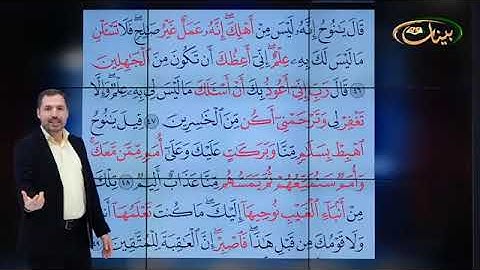 بينات
قَالَ يَٰنُوحُ إِنَّهُۥ لَيْسَ مِنْ أَهْلِكَۖ إِنَّهُۥ عَمَلٌ غَيْرُ صَٰلِحٍۖ فَلَا تَسْـَٔلْنِ
مَا لَيْسَ لَكَ بِهِۦ عِلْمٌۖ إِنِّىٓ أَعِظُكَ أَن تَكُونَ مِنَ ٱلْجَٰهِلِينَ
٤٦ قَالَ رَبِّ إِنِّىٓ أَعُوذُ بِكَ أَنْ أَسْـَٔلَكَ مَا لَيْسَ لِى بِهِۦ عِلْمٌۖ وَإِلَّا
تَغْفِرْ لِى وَتَرْحَمْنِىٓ أَكُن مِّنَ ٱلْخَٰسِرِينَ ٤٧ قِيلَ يَٰنُوحُ
ٱهْبِطْ بِسَلَٰمٍ مِّنَّا وَبَرَكَٰتٍ عَلَيْكَ وَعَلَىٰٓ أُمَمٍ مِّمَّن مَّعَكَۚ
وَأُمَمٌ سَنُمَتِّعُهُمْ ثُمَّ يَمَسُّهُم مِّنَّا عَذَابٌ أَلِيمٌ ٤٨ تِلْكَ
مِنْ أَنۢبَآءِ ٱلْغَيْبِ نُوحِيهَآ إِلَيْكَۖ مَا كُنتَ تَعْلَمُهَآ أَنتَ
وَلَا قَوْمُكَ مِن قَبْلِ هَٰذَاۖ فَٱصْبِرْۖ إِنَّ ٱلْعَٰقِبَةَ لِلْمُتَّقِينَ ٤٩